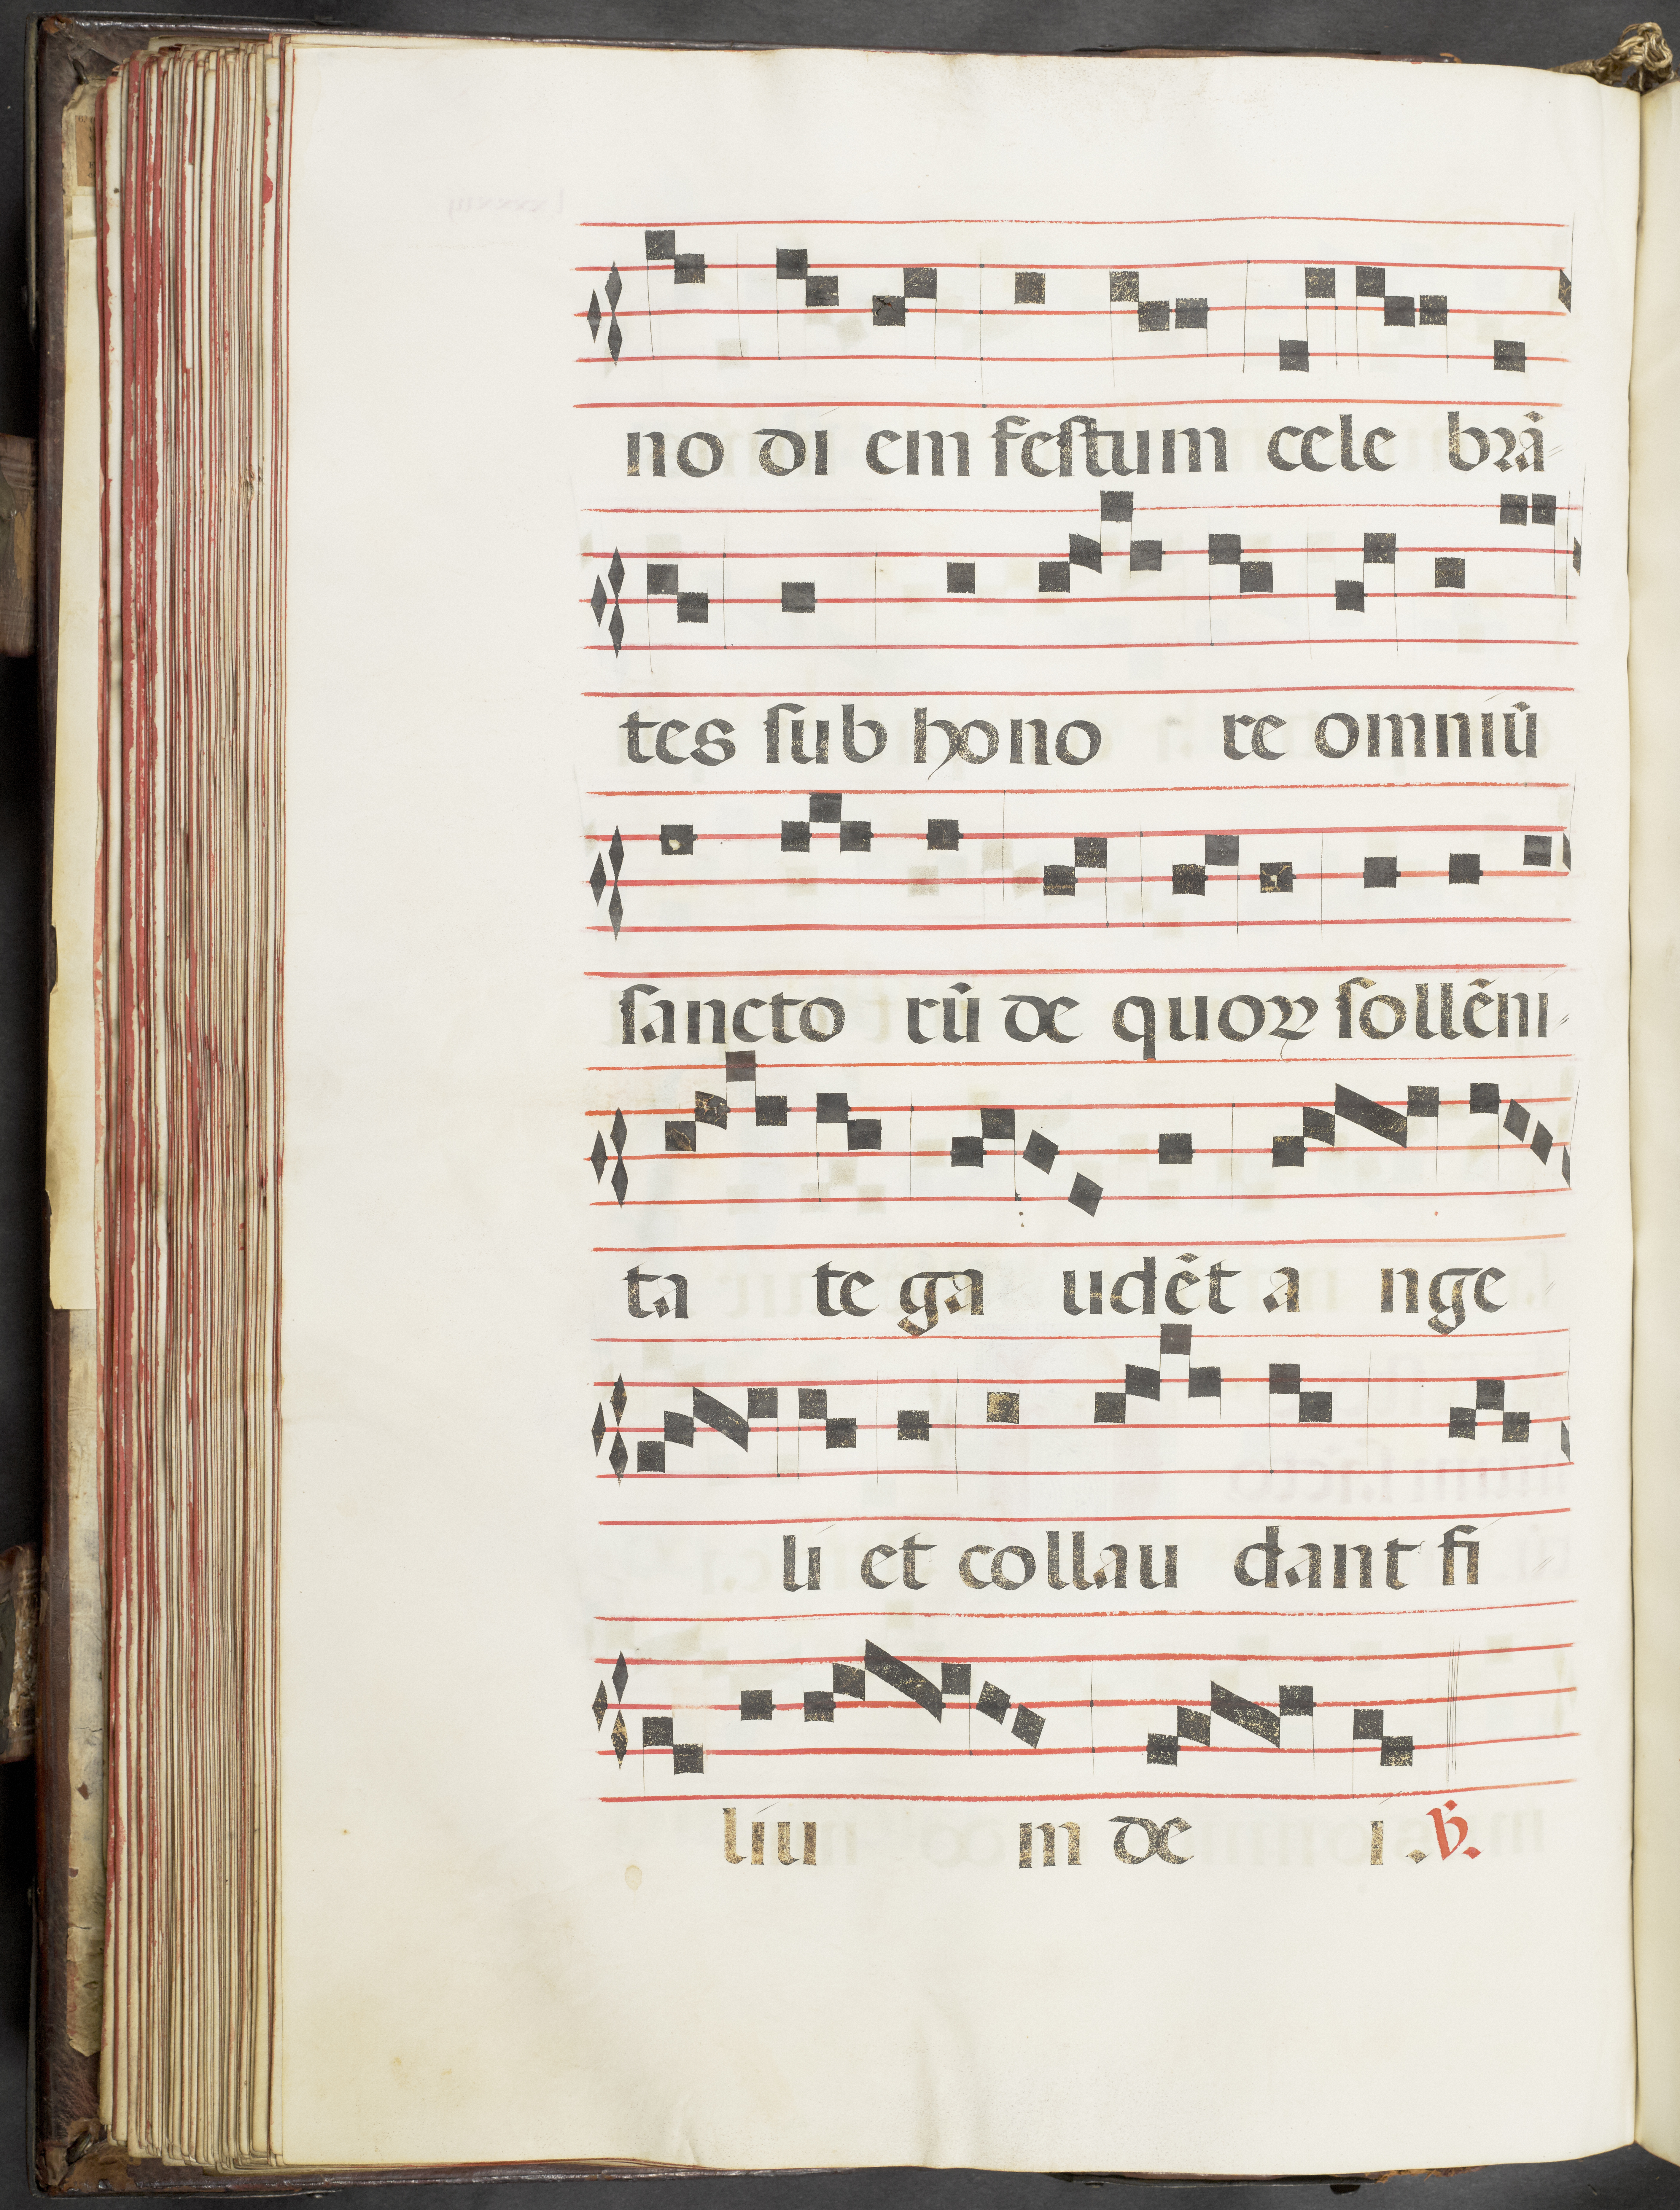 no di em festum cele brã
tes sub hono re omniũ
sancto rũ de quoꝝ sollẽni
ta te ga udẽt a nge
li et collau dant fi
liu m de i . ℣.